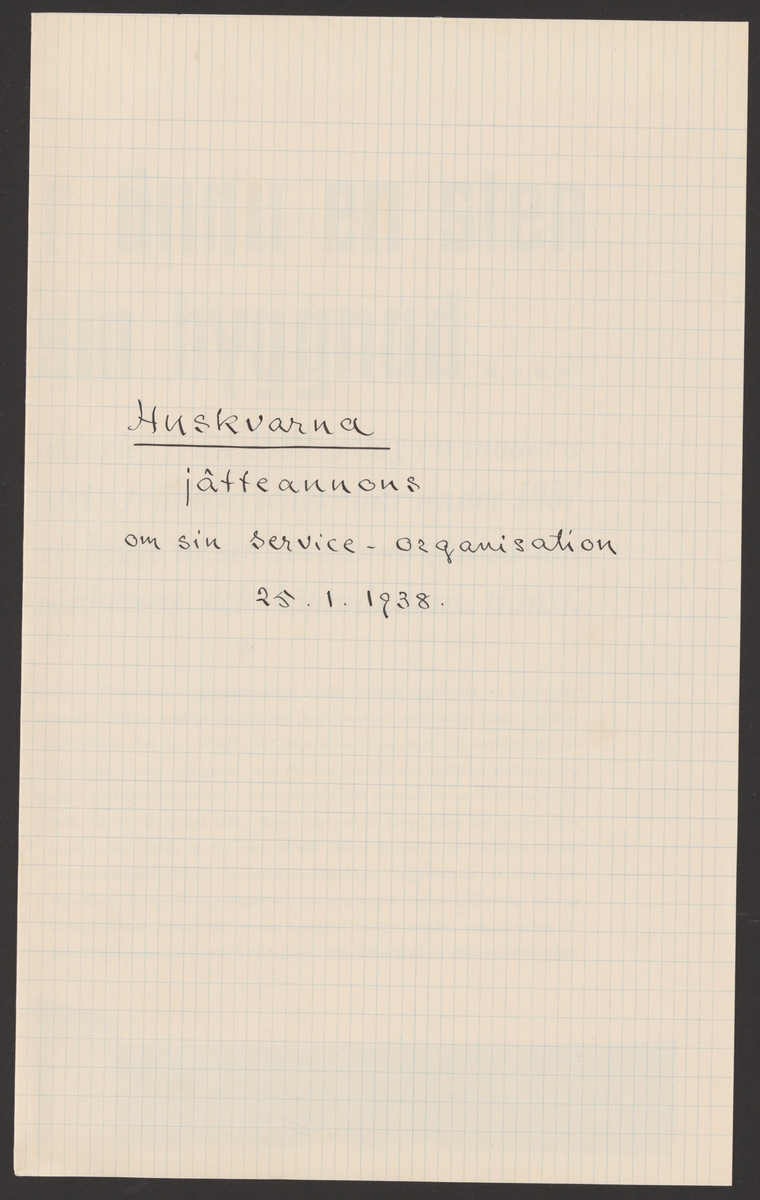 Huskvarna
jätteannons
om sin service - organisation
25. 1. 1938.